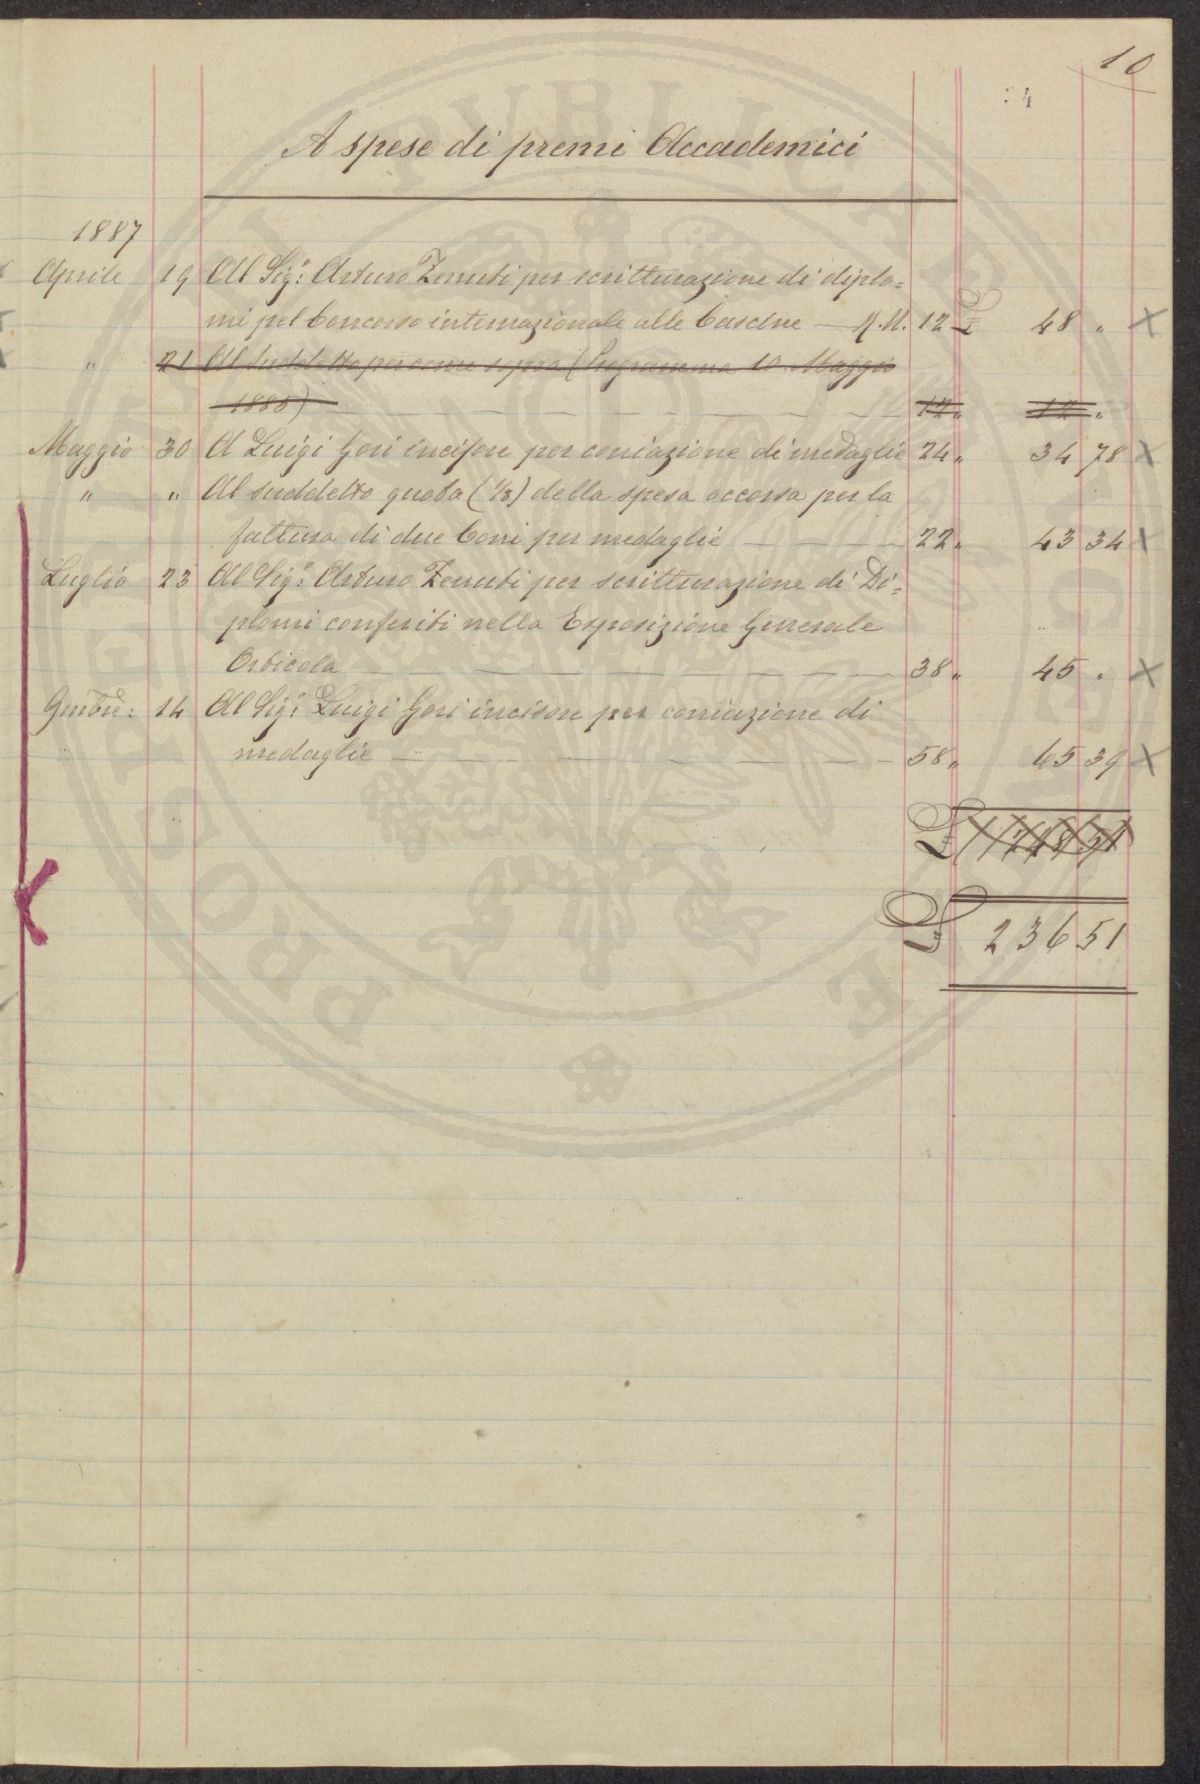 10
A spese di premi Accademici
1887
Aprile 19 Al Sigr: Arturo Zenuti per scritturazione di diplo=
mi pel Concorso internazionale alle Cascine — M.U. 12 L 48 " X
" 21 Al suddetto per come sopra (Programma 10 Maggio
1886) 12 " 12 "
Maggio 30 A Luigi Gori incisore per coniazione di medaglie 24 " 34 78 X
" " Al suddetto quota (1/3) della spesa occorsa per la
fattura di due Coni per medaglie 22 " 43 34 X
Luglio 23 Al Sigr: Arturo Zenuti per scritturazione di Di=
plomi conferiti nella Esposizione Generale
Orticola 38 " 45 " X
14 Al Sigr: Luigi Gori incisore per coniazione di
medaglie 58 " 65 39 X
L 248 51
L 236 51
PROSPERITATI PVBLICAE